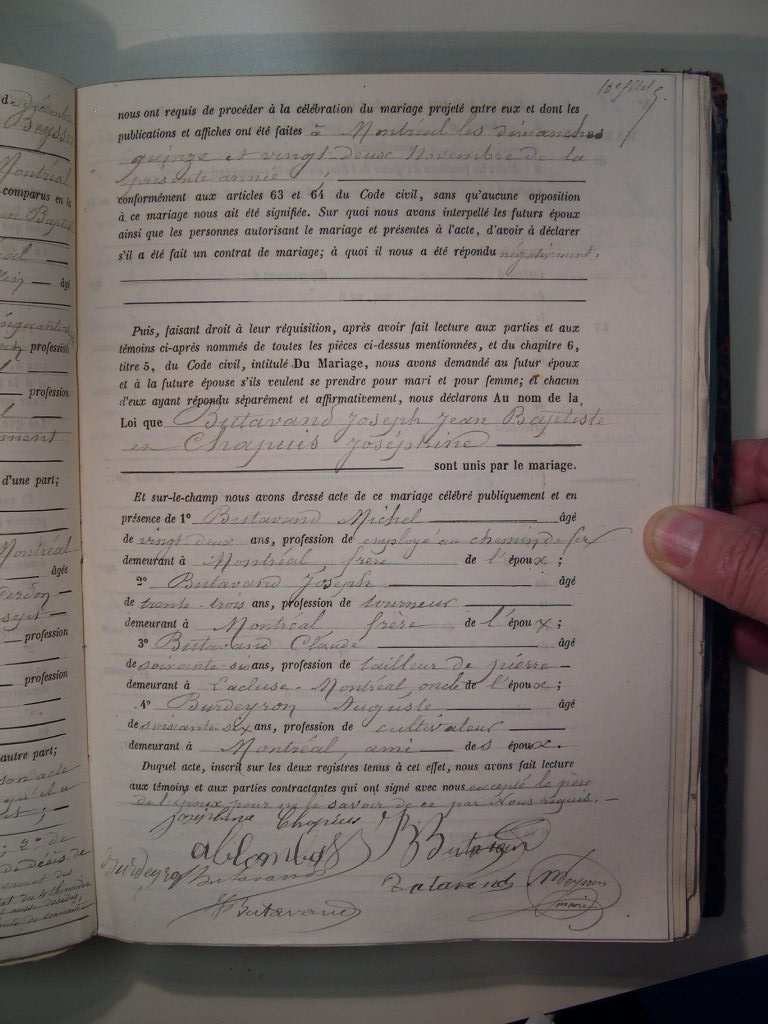 nous ont requis de procéder à la célébration du mariage projeté entre eux et dont les
publications et affiches ont été faites à Montréal les dimanches
quinze et vingt deux Novembre de la
présente année
conformément aux articles 63 et 64 du Code civil, sans qu'aucune opposition
à ce mariage nous ait été signifiée. Sur quoi nous avons interpellé les futurs époux
ainsi que les personnes autorisant le mariage et présentes à l'acte, d'avoir à déclarer
s'il a été fait un contrat de mariage; à quoi il nous a été répondu négativement.
Puis, faisant droit à leur réquisition, après avoir fait lecture aux parties et aux
témoins ci-après nommés de toutes les pièces ci-dessus mentionnées, et du chapitre 6,
titre 5, du Code civil, intitulé Du Mariage, nous avons demandé au futur époux
et à la future épouse s'ils veulent se prendre pour mari et pour femme; et chacun
d'eux ayant répondu séparément et affirmativement, nous déclarons Au nom de la
Loi que Butavand Joseph Jean Baptiste
en Chapuis Joséphine
sont unis par le mariage.
Et sur-le-champ nous avons dressé acte de ce mariage célébré publiquement et en
présence de 1° Butavand Michel âgé
de vingt deux ans, profession de employé au chemin de fer
demeurant à Montréal, frère de l'époux;
2° Butavand Joseph âgé
de trente-trois ans, profession de tourneur
demeurant à Montréal frère de l'époux;
3° Butavand Claude âgé
de soixante six ans, profession de tailleur de pierre
demeurant à Lacluse-Montréal, oncle de l'époux;
4° Burdeyron Auguste âgé
de soixante six ans, profession de cultivateur
demeurant à Montréal, ami des époux.
Duquel acte, inscrit sur les deux registres tenus à cet effet, nous avons fait lecture
aux témoins et aux parties contractantes qui ont signé avec nous excepté le père
de l'époux pour ne le savoir de ce par Nous requis.
Joséphine Chapuis
Butavand
Burdeyron Butavand
Butavand
maire
Butavand
Montréal
comparus en la
âgé
profession
profession
d'une part;
Montréal
âgée
profession
profession
autre part;